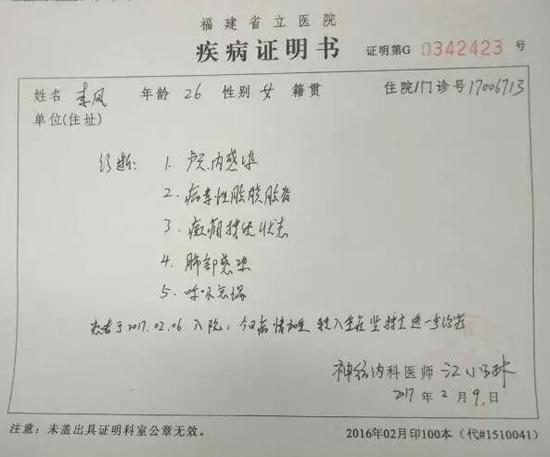 福建省立医院
疾病证明书 证明第G 0342423 号
姓名 李凤 年龄 26 性别 女 籍贯 住院/门诊号 17006713
单位(住址)
诊断: 1. 颅内感染
2. 病毒性脑膜脑炎
3. 癫痫持续状态
4. 肺部感染
5. 呼吸衰竭
患者于2017.02.06入院,今日病情加重 转入重症监护 进一步治疗
神经内科医师 江小
2017 年 2 月 9 日
注意:未盖出具证明科室公章无效。 2016年02月印100本(代#1510041)